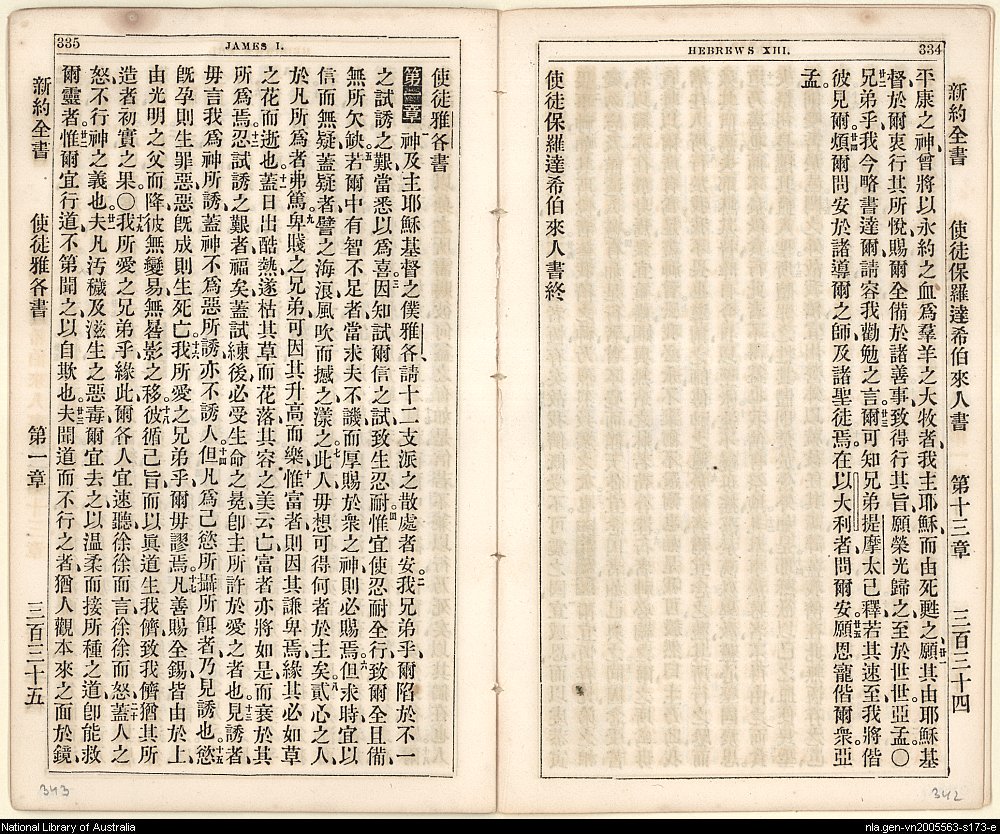 334
HEBREWS XIII.
新約全書 使徒保羅達希伯來人書 第十三章 三百三十四
平康之神、曾將以永約之血爲羣羊之大牧者、我主耶穌、而由死甦之、願其由耶穌基
督於爾衷行其所悅、賜爾全備於諸善事、致得行其旨、願榮光歸之至於世世。亞孟。〇
兄弟乎、我今略書達爾、請容我勸勉之言。爾可知兄弟提摩太已釋、若其速至、我將偕
彼見爾。煩爾問安於諸導爾之師、及諸聖徒焉、在以大利者問爾安。願恩寵偕爾衆、亞
孟。
使徒保羅達希伯來人書終
335
JAMES I.
使徒雅各書
第一章 神及主耶穌基督之僕雅各、請十二支派之散處者安。我兄弟乎、爾陷於不一
之試誘之艱、當悉以爲喜。因知試爾信之試、致生忍耐。惟宜使忍耐全行、致爾全且備、
無所欠缺。若爾中有智不足者、當求夫不譏而厚賜於衆之神、則必賜焉。但求時宜以
信而無疑、蓋疑者譬之海浪、風吹而撼之漾之。此人毋想可得何者於主矣。貳心之人、
於凡所爲者弗篤。卑賤之兄弟、可因其升高而樂。惟富者、則因其謙卑焉、緣其必如草
之花而逝也。蓋日出酷熱、遂枯其草、而花落、其容之美云亡、富者亦將如是而衰於其
所爲焉。忍試誘之艱者福矣、蓋試練後、必受生命之冕、卽主所許於愛之者也。見誘者、
毋言我爲神所誘、蓋神不爲惡所誘、亦不誘人。但凡爲己慾所攝所餌者、乃見誘也。慾
旣孕則生罪惡、惡旣成則生死亡。我所愛之兄弟乎、爾毋謬焉。凡善賜全錫、皆由於上、
由光明之父而降、彼無變易、無晷影之移。彼循己旨、而以眞道生我儕、致我儕猶其所
造者初實之果。〇我所愛之兄弟乎、緣此爾各人宜速聽、徐徐而言、徐徐而怒。蓋人之
怒、不行神之義也。夫凡汚穢及滋生之惡毒、爾宜去之、以温柔而接所種之道、卽能救
爾靈者。惟爾宜行道、不第聞之以自欺也。夫聞道而不行之者、猶人觀本來之面於鏡、
新約全書 使徒雅各書 第一章 三百三十五
343
342
National Library of Australia
nla.gen-vn2005563-s173-e